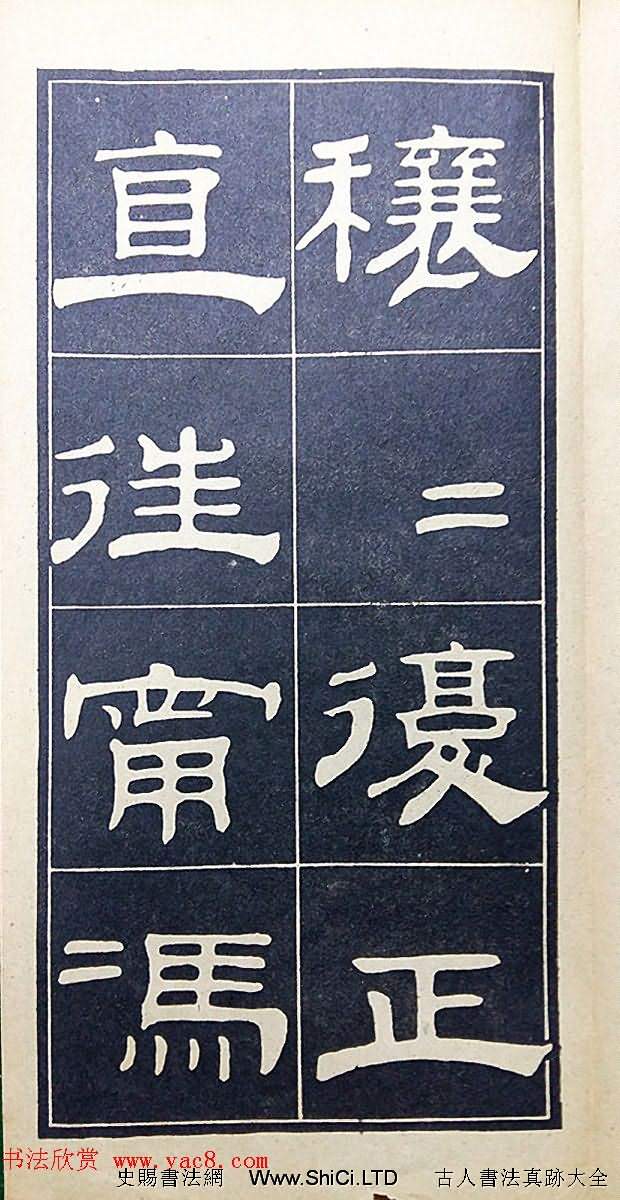 穰二復正
直往甯馮
书法欣赏 www.yac8.com
史賜書法網 Www.ShiCi.LTD 古人書法真跡大全